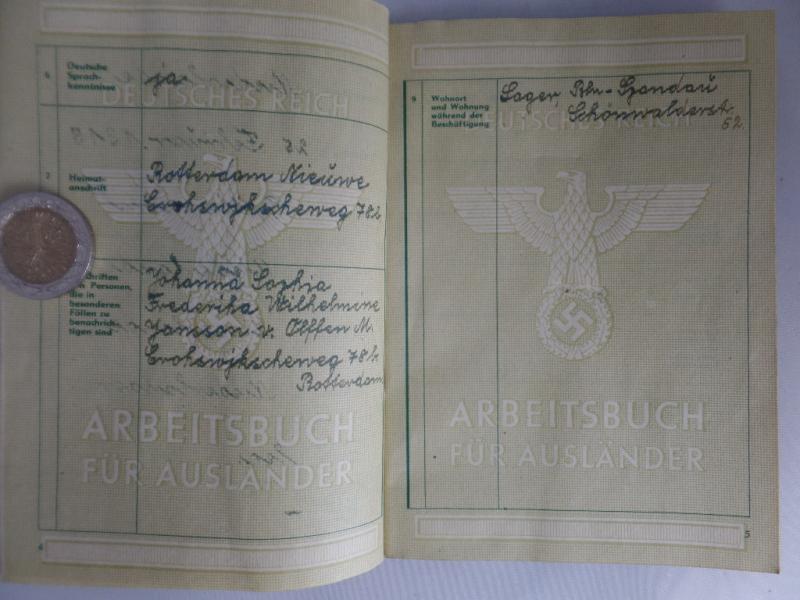 6
Deutsche
Sprach-
kenntnisse
ja
DEUTSCHES REICH
7
Heimat-
anschrift
Rotterdam Nieuwe
Crohswjkscheweg 78
schriften
Personen,
die in
besonderen
Fällen zu
benachrich-
tigen sind
Johanna Sophia
Frederika Wilhelmine
Jansson v. Olffen M.
Crohswjkscheweg 78 b
Rotterdam
ARBEITSBUCH
FÜR AUSLÄNDER
4
9
Wohnort
und Wohnung
während der
Beschäftigung
Lager, Bln-Spandau
Schönwalderst.
62.
DEUTSCHES REICH
ARBEITSBUCH
FÜR AUSLÄNDER
5